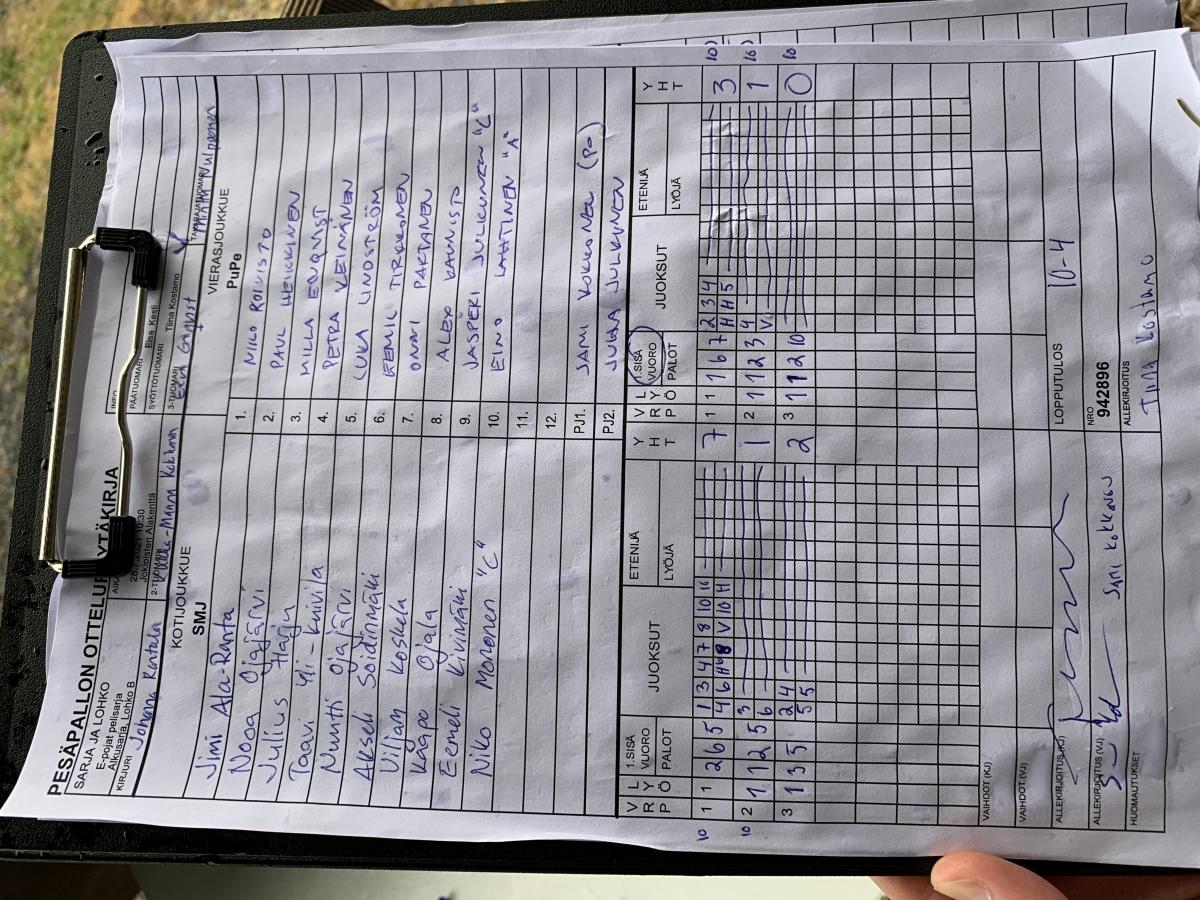 PESÄPALLON OTTELUPÖYTÄKIRJA
SARJA JA LOHKO
E-pojat pelisarja
Alkusarja Lohko B
Jokioisten Alakenttä
INFO
PÄÄTUOMARI Elsa Kossi
SYÖTTÖTUOMARI Tiina Kostamo
KIRJURI Johanna Rantala
2-TUOMARI
3-TUOMARI
TAKARAJATUOMARI
KOTIJOUKKUE
SMJ
VIERASJOUKKUE
PuPe
Jimi Ala-Ranta 1. NIILO ROIVISTO
Nooa Ojajärvi 2. PAUL HEIKKINEN
Julius Harju 3. MILLA ENQVIST
Taavi Yli-Knivilä 4. PETRA KEINÄNEN
Nuutti Ojajärvi 5. LUKA LINDSTRÖM
Akseli Soidinmäki 6. EEMIL TIRKKONEN
Viljam Koskela 7. ONNI PARTANEN
Kaapo Ojala 8. ALEX KAUNISTO
Eemeli Kivimäki 9. JASPERI JULKUNEN "C"
Niko Mononen "C" 10. EINO LAHTINEN "A"
11.
12.
PJ1. SAMI KOKKONEN (PJ)
PJ2. JUKKA JULKUNEN
V R L Y Ö P 1.SISÄ VUORO PALOT JUOKSUT ETENIJÄ LYÖJÄ YHT V R L Y Ö P 1.SISÄ VUORO PALOT JUOKSUT ETENIJÄ LYÖJÄ YHT
10 1 1 2 6 5 1 3 4 7 8 10 11 7 1 1 1 6 7 2 3 4 3 10)
4 6 H 8 V 10 H H H 5
10 2 1 1 2 5 3 1 2 1 1 2 3 4 1 10)
6 V
3 1 3 5 2 4 2 3 1 1 2 10 0 10
5 5
VAIHDOT (KJ)
VAIHDOT (VJ)
ALLEKIRJOITUS (KJ) LOPPUTULOS 10-4
ALLEKIRJOITUS (VJ) SAMI KOKKONEN NRO 942896
HUOMAUTUKSET ALLEKIRJOITUS TIINA Kostamo